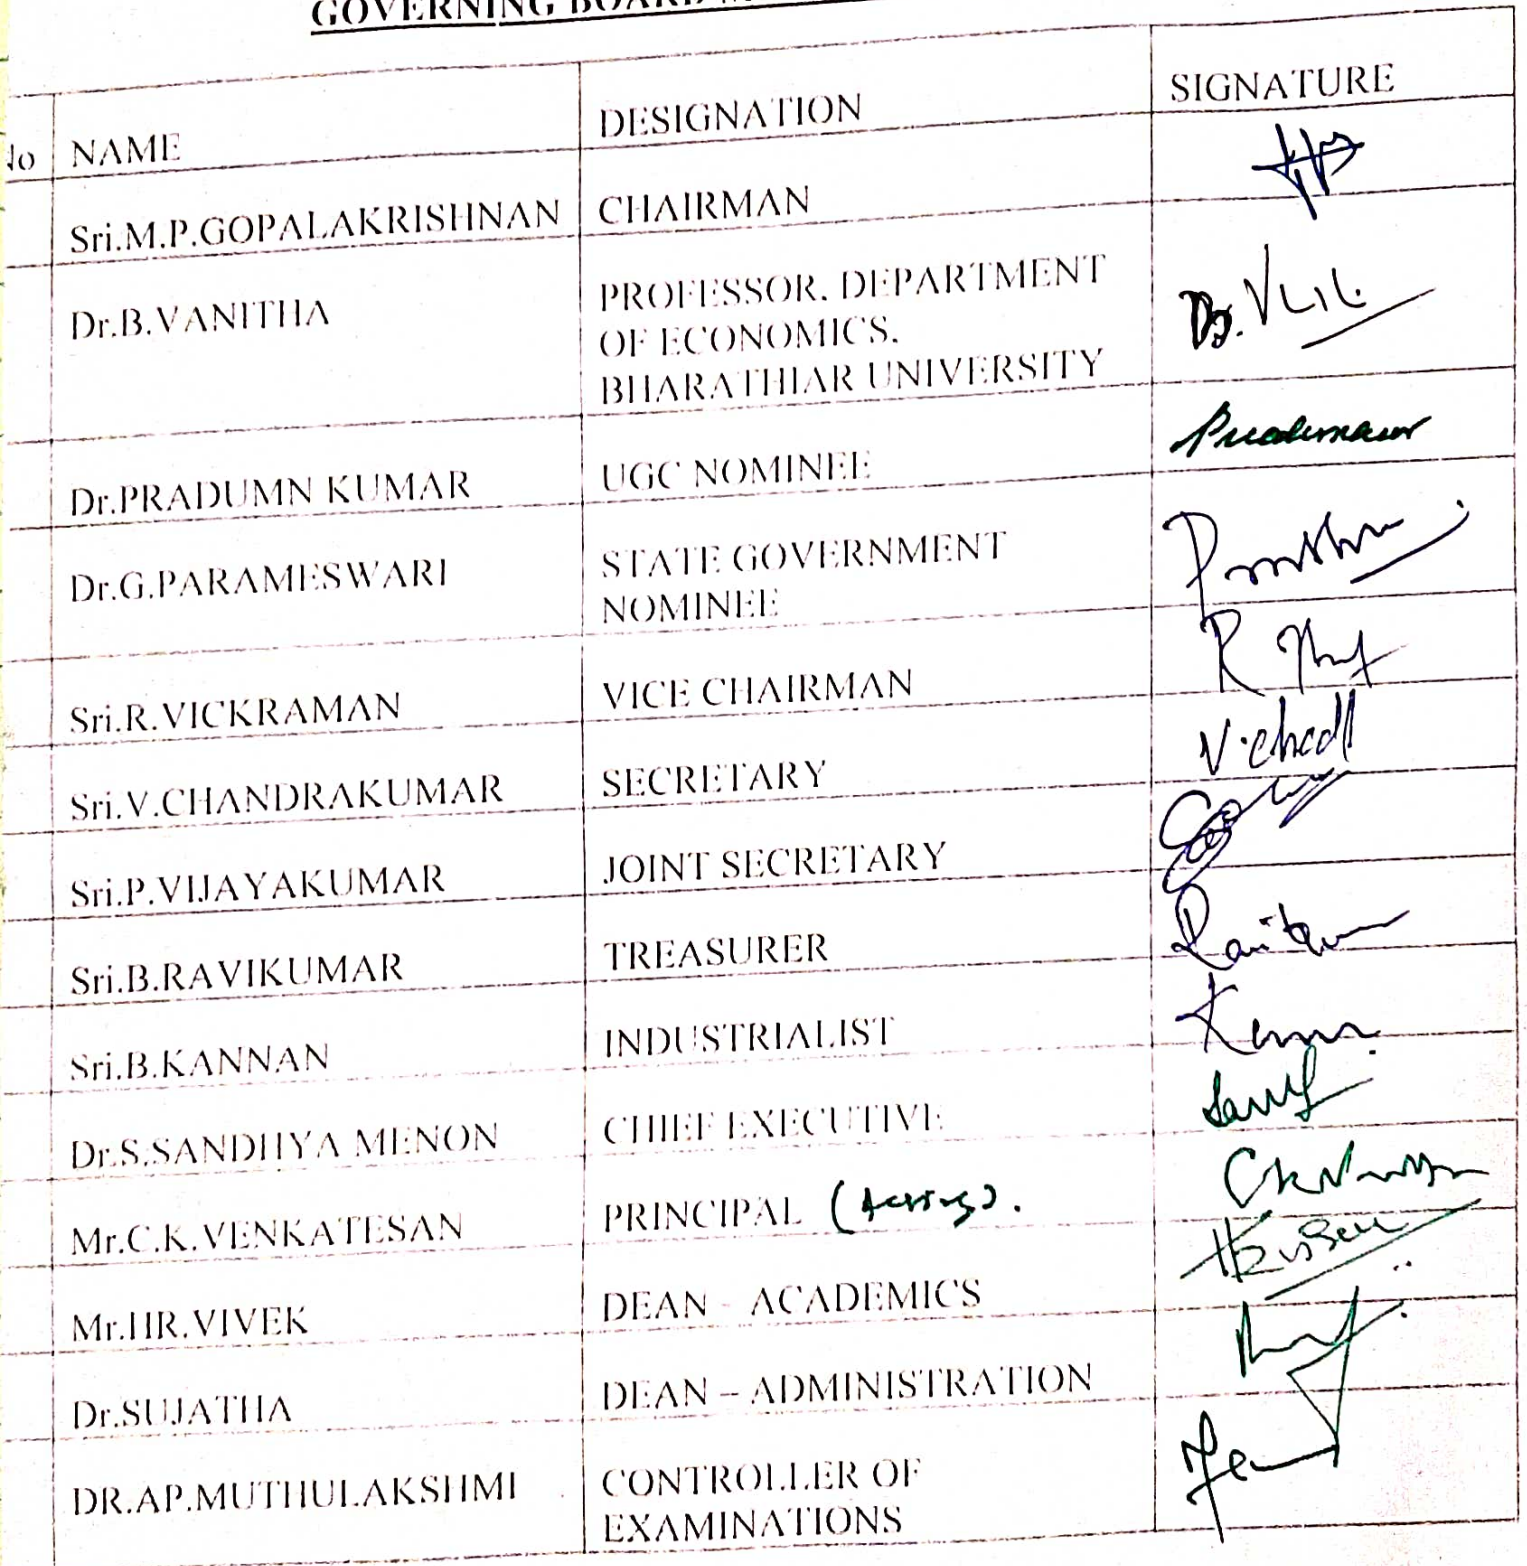 GOVERNING BOARD
No NAME DESIGNATION SIGNATURE
Sri.M.P.GOPALAKRISHNAN CHAIRMAN
Dr.B.VANITHA PROFESSOR, DEPARTMENT
OF ECONOMICS,
BHARATHIAR UNIVERSITY
Dr.PRADUMN KUMAR UGC NOMINEE
Dr.G.PARAMESWARI STATE GOVERNMENT
NOMINEE
Sri.R.VICKRAMAN VICE CHAIRMAN
Sri.V.CHANDRAKUMAR SECRETARY
Sri.P.VIJAYAKUMAR JOINT SECRETARY
Sri.B.RAVIKUMAR TREASURER
Sri.B.KANNAN INDUSTRIALIST
Dr.S.SANDHYA MENON CHIEF EXECUTIVE
Mr.C.K.VENKATESAN PRINCIPAL (Acting).
Mr.HR.VIVEK DEAN - ACADEMICS
Dr.SUJATHA DEAN – ADMINISTRATION
DR.AP.MUTHULAKSHMI CONTROLLER OF
EXAMINATIONS